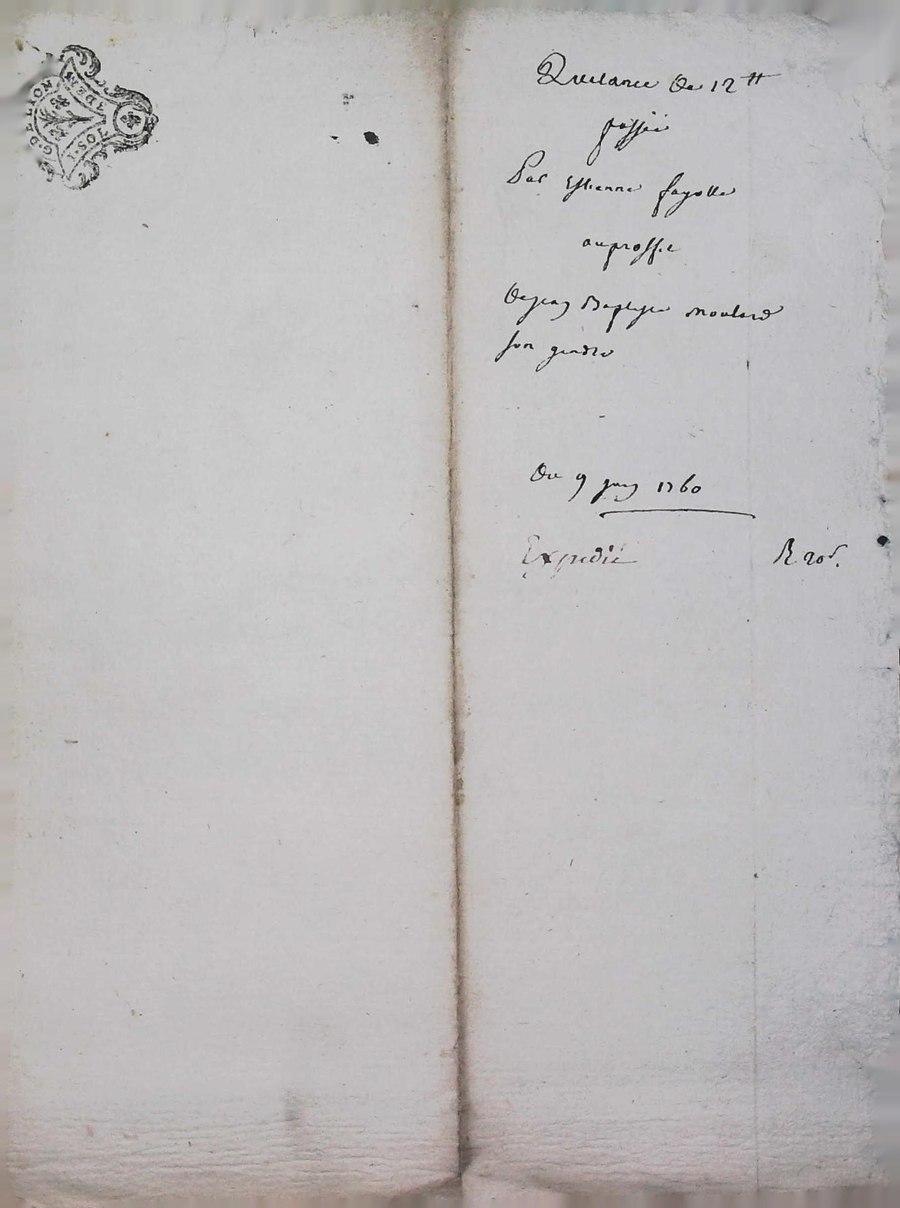 G. DE LYON
1. SOL. 1. DEN.
Quitance De 12 ₶
passée
Par Estienne fayolle
auproffit
De jean Baptiste moulard
son gendre
Du 9 juin 1760
Expedié
R 20 s.